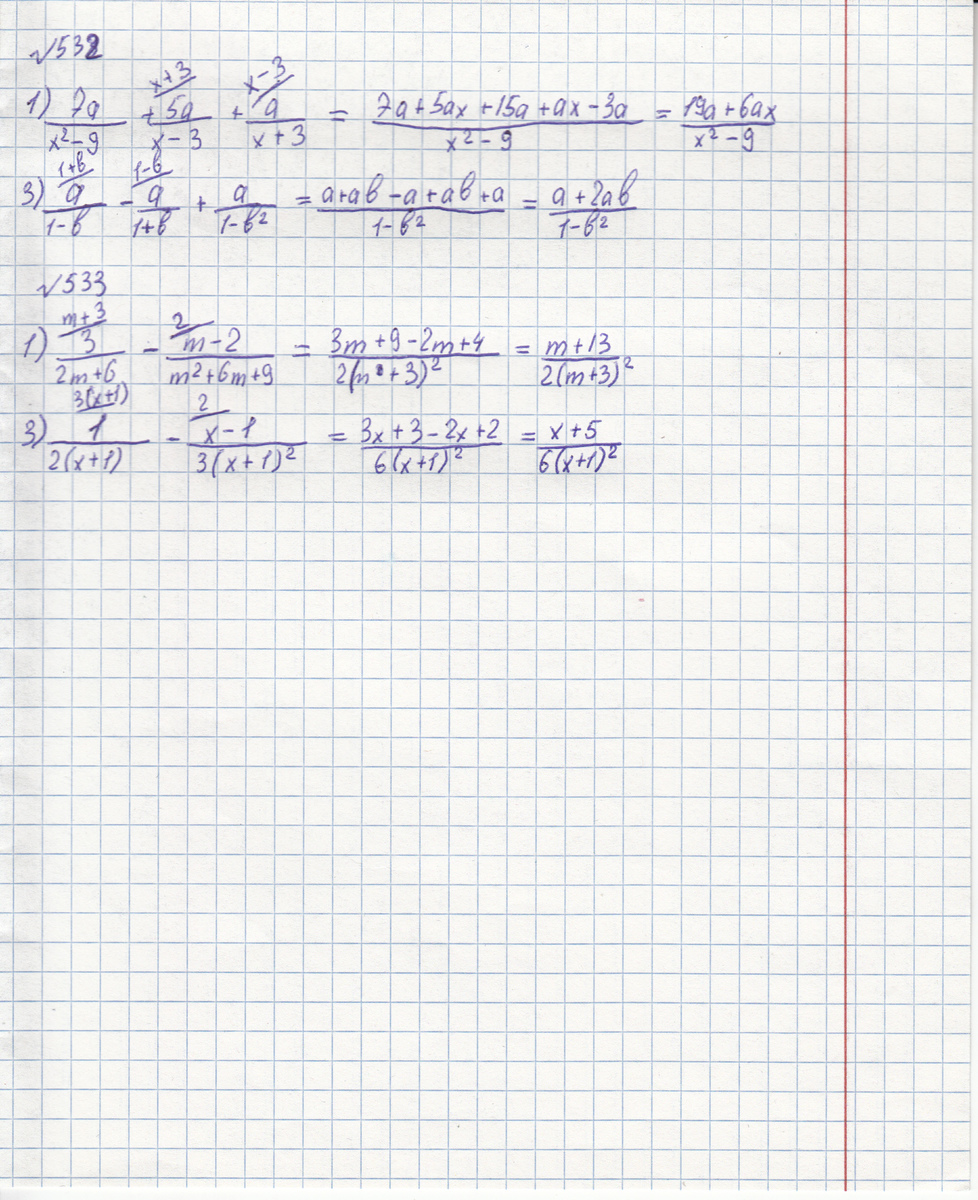 √532
1) 7a/(x²-9) + 5a/(x-3) (x+3) + a/(x+3) (x-3) = (7a+5ax+15a+ax-3a)/(x²-9) = (19a+6ax)/(x²-9)
3) a/(1-в) (1+в) - a/(1+в) (1-в) + a/(1-в²) = (a+aв-a+aв+a)/(1-в²) = (a+2aв)/(1-в²)
√533
1) 3/(2m+6) (m+3) - (m-2)/(m²+6m+9) (2) = (3m+9-2m+4)/(2(m+3)²) = (m+13)/(2(m+3)²)
3) 1/(2(x+1)) (3(x+1)) - (x-1)/(3(x+1)²) (2) = (3x+3-2x+2)/(6(x+1)²) = (x+5)/(6(x+1)²)